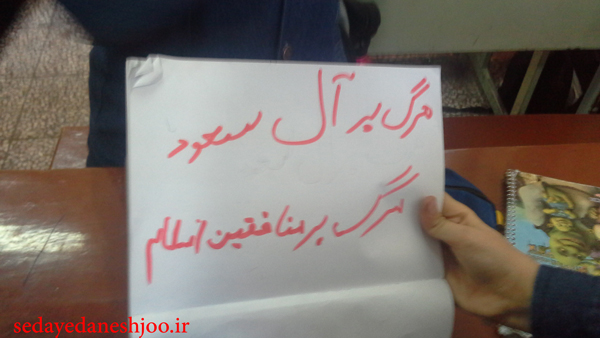 مرگ بر آل سعود
مرگ بر منافقین اسلام
sedayedaneshjoo.ir